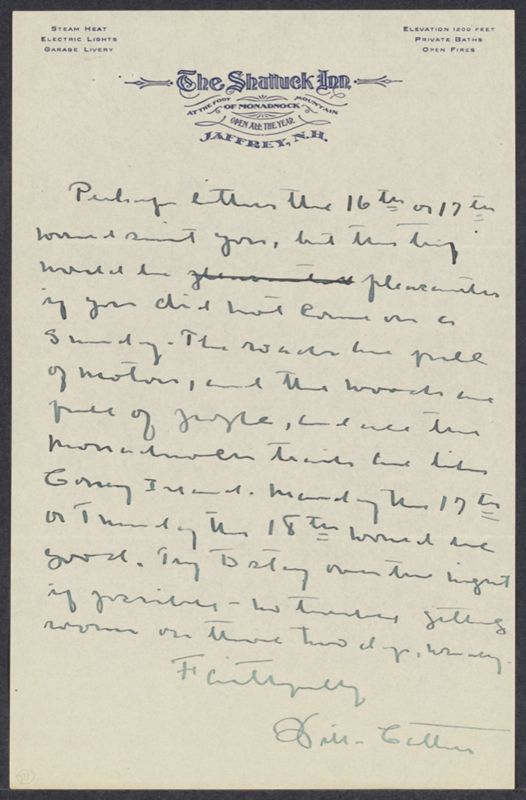 STEAM HEAT
ELECTRIC LIGHTS
GARAGE LIVERY
ELEVATION 1200 FEET
PRIVATE BATHS
OPEN FIRES
The Shattuck Inn
AT THE FOOT OF MONADNOCK MOUNTAIN
OPEN ALL THE YEAR
JAFFREY, N.H.
Perhaps either the 16th or 17th
would suit you, but the trip
would be pleasanter
if you did not come on a
Sunday. The roads are full
of motors, and the woods are
full of people, and all the
Monadnock trails are like
Coney Island. Monday the 17th
or Tuesday the 18th would be
good. Try to stay over the night
if possible - no trouble getting
rooms on those two days,
Faithfully
Willa Cather